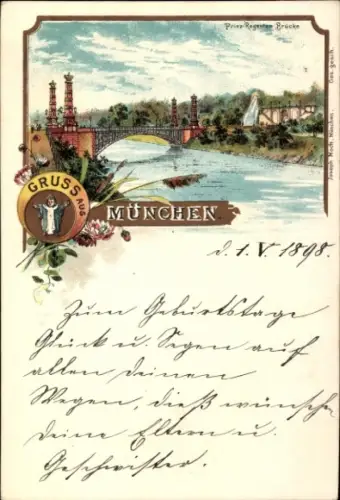 Prinz-Regenten Brücke
GRUSS AUS
MÜNCHEN.
d. 1. V. 1898.
Zum Geburtstage
Glück u. Segen auf
allen deinen
Wegen, dieß wünschen
deine Eltern u.
Geschwister.
Ges. gesch.